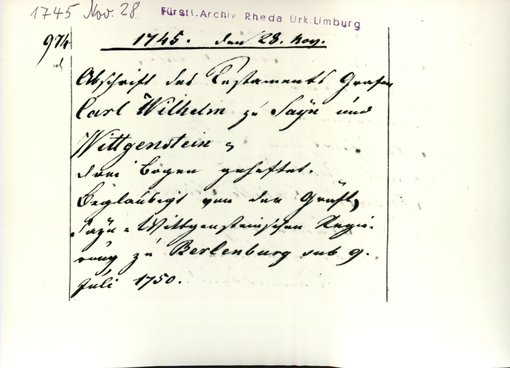 1745 Nov. 28
Fürstl. Archiv Rheda Urk. Limburg
974
1745. den 28. Nov.
Abschrift des Testaments Grafen
Carl Wilhelm zu Sayn und
Wittgenstein
drei Bogen geheftet.
Beglaubigt von der Gräfl.
Sayn-Wittgensteinschen Regie-
rung zu Berlenburg sub 9.
Juli 1750.